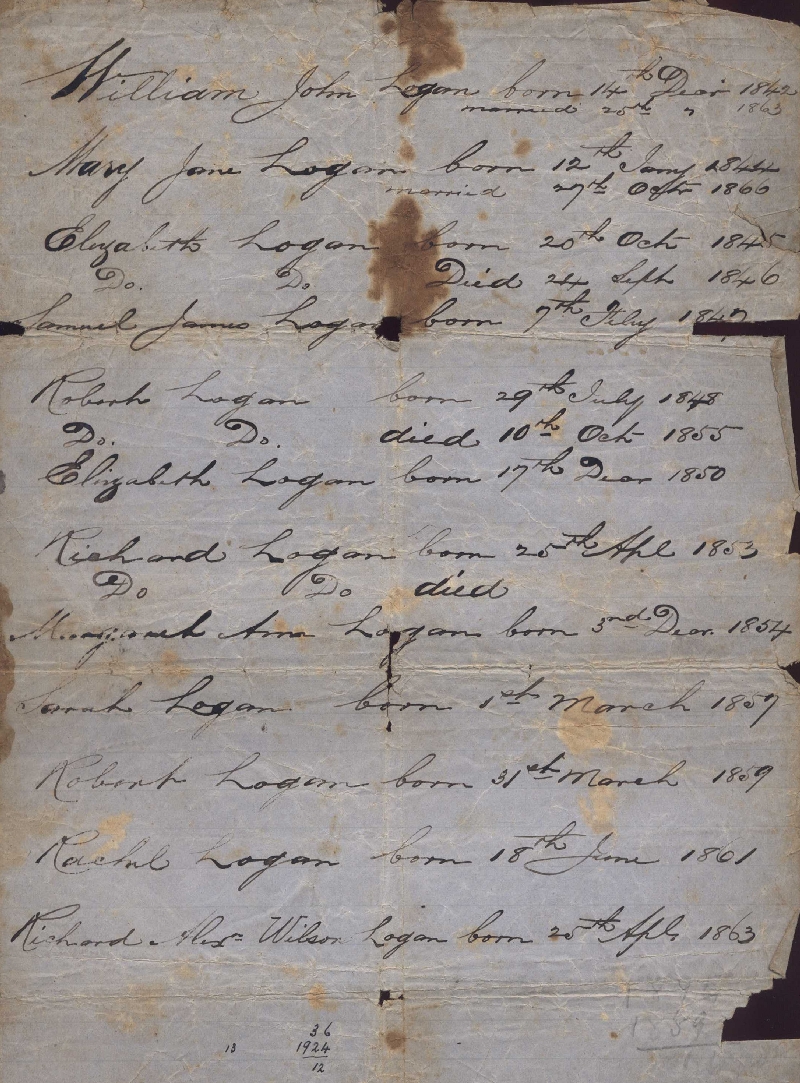 William John Logan born 14th Decr 1842
married 25th " 1863
Mary Jane Logan born 12th Jany 1844
married 27th Octr 1866
Elizabeth Logan born 20th Oct 1845
Do. Do Died 24 Sept 1846
Samuel James Logan born 7th Feby 1847
Robert Logan born 29th July 1848
Do. Do. died 10th Oct 1855
Elizabeth Logan born 17th Decr 1850
Richard Logan born 25th Apl 1853
Do Do died
Margaret Ann Logan born 3nd Decr 1854
Sarah Logan born 1st March 1857
Robert Logan born 31st March 1859
Rachel Logan born 18th June 1861
Richard Alexr Wilson Logan born 25th Apl 1863
36
13 1924
12